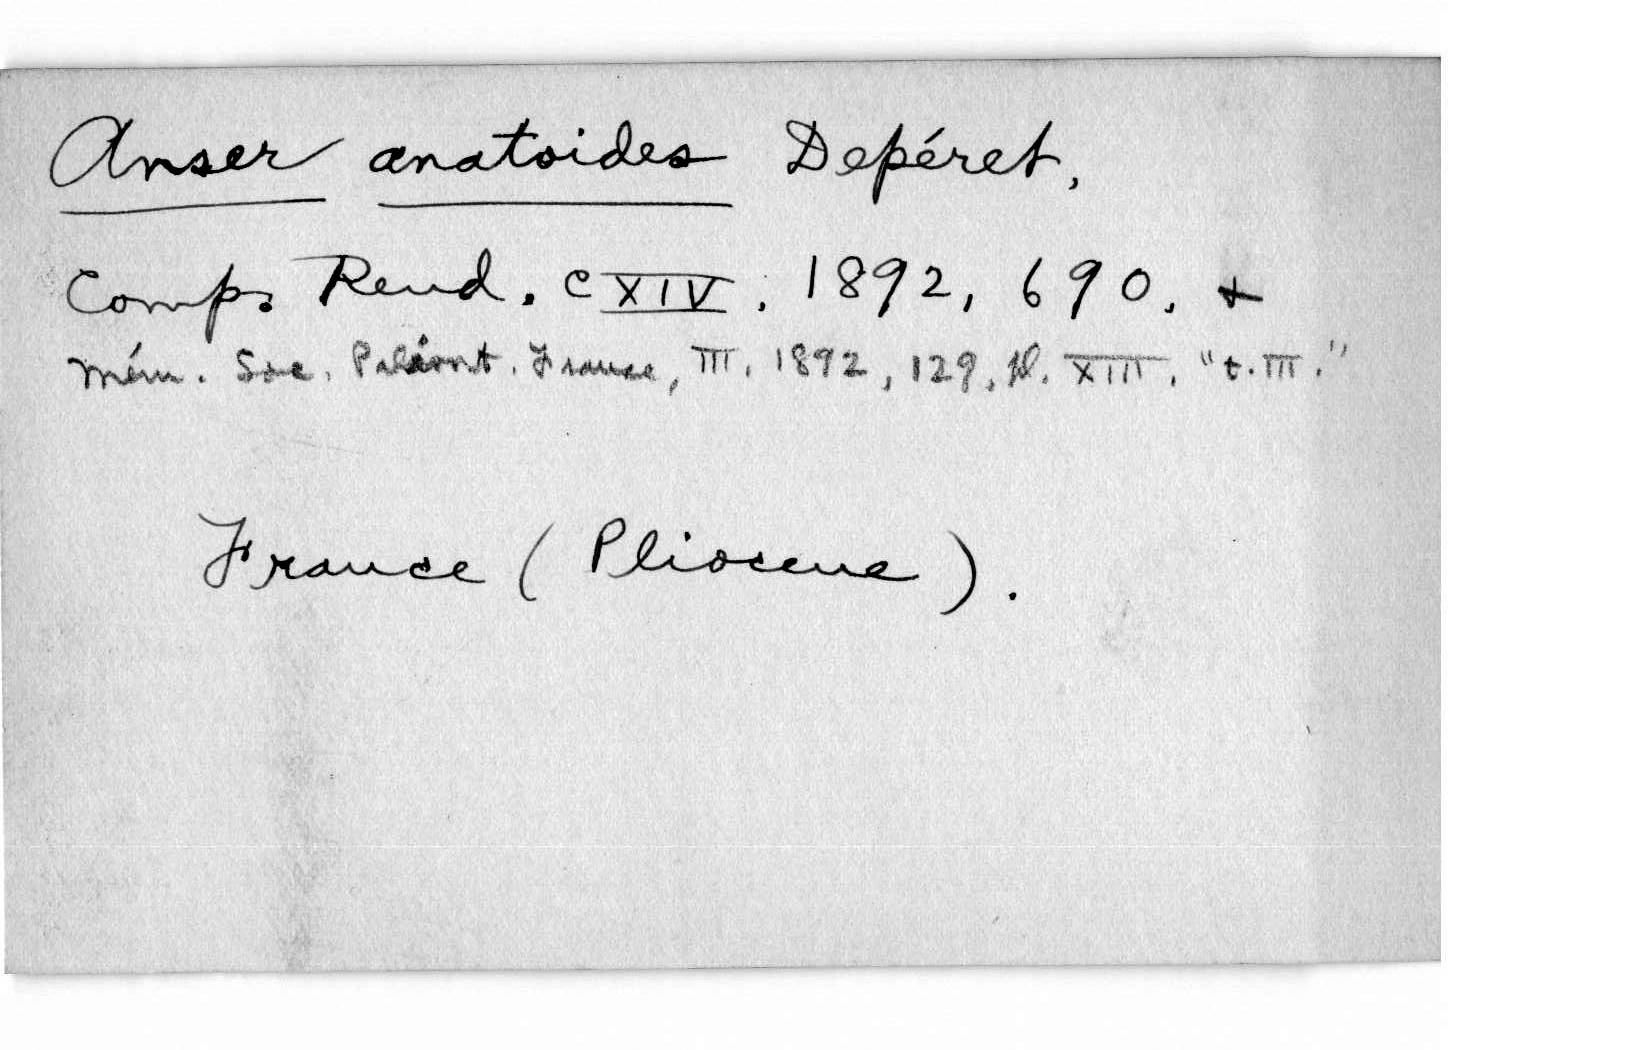 Anser anatoides Depéret,
Comp. Rend. CXIV. 1892, 690. +
Mém. Soc. Paléont. France, III. 1892, 129, pl. XIII. "t. III."
France (Pliocene).